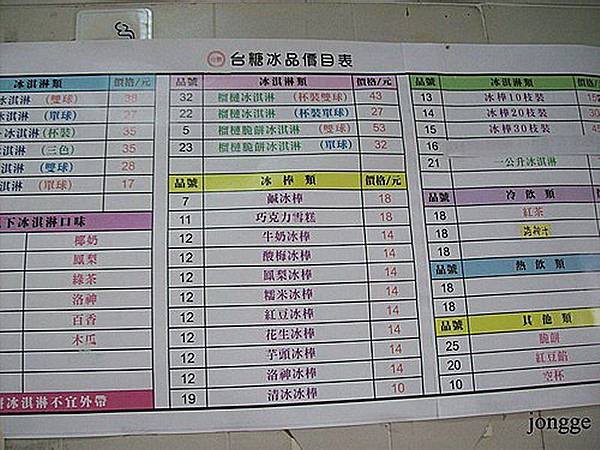 台糖冰品價目表
冰淇淋類 價格/元
冰淇淋 (雙球) 38
冰淇淋 (單球) 27
冰淇淋 (杯裝) 35
冰淇淋 (三色) 35
冰淇淋 (雙球) 28
冰淇淋 (單球) 17
下冰淇淋口味
椰奶
鳳梨
綠茶
洛神
百香
木瓜
冰淇淋不宜外帶
品號 冰淇淋類 價格/元
32 榴槤冰淇淋 (杯裝雙球) 43
22 榴槤冰淇淋 (杯裝單球) 27
5 榴槤脆餅冰淇淋 (雙球) 53
23 榴槤脆餅冰淇淋 (單球) 32
品號 冰棒類 價格/元
7 鹹冰棒 18
11 巧克力雪糕 18
12 牛奶冰棒 14
12 酸梅冰棒 14
12 鳳梨冰棒 14
12 糯米冰棒 14
12 紅豆冰棒 14
12 花生冰棒 14
12 芋頭冰棒 14
12 洛神冰棒 14
19 清冰冰棒 10
品號 冰淇淋類
13 冰棒10枝裝
14 冰棒20枝裝
15 冰棒30枝裝
16
21 一公升冰淇淋
品號 冷飲類
18 紅茶
18
18
品號 熱飲類
18
18
品號 其他類
25 脆餅
20 紅豆餡
10 空杯
jongge